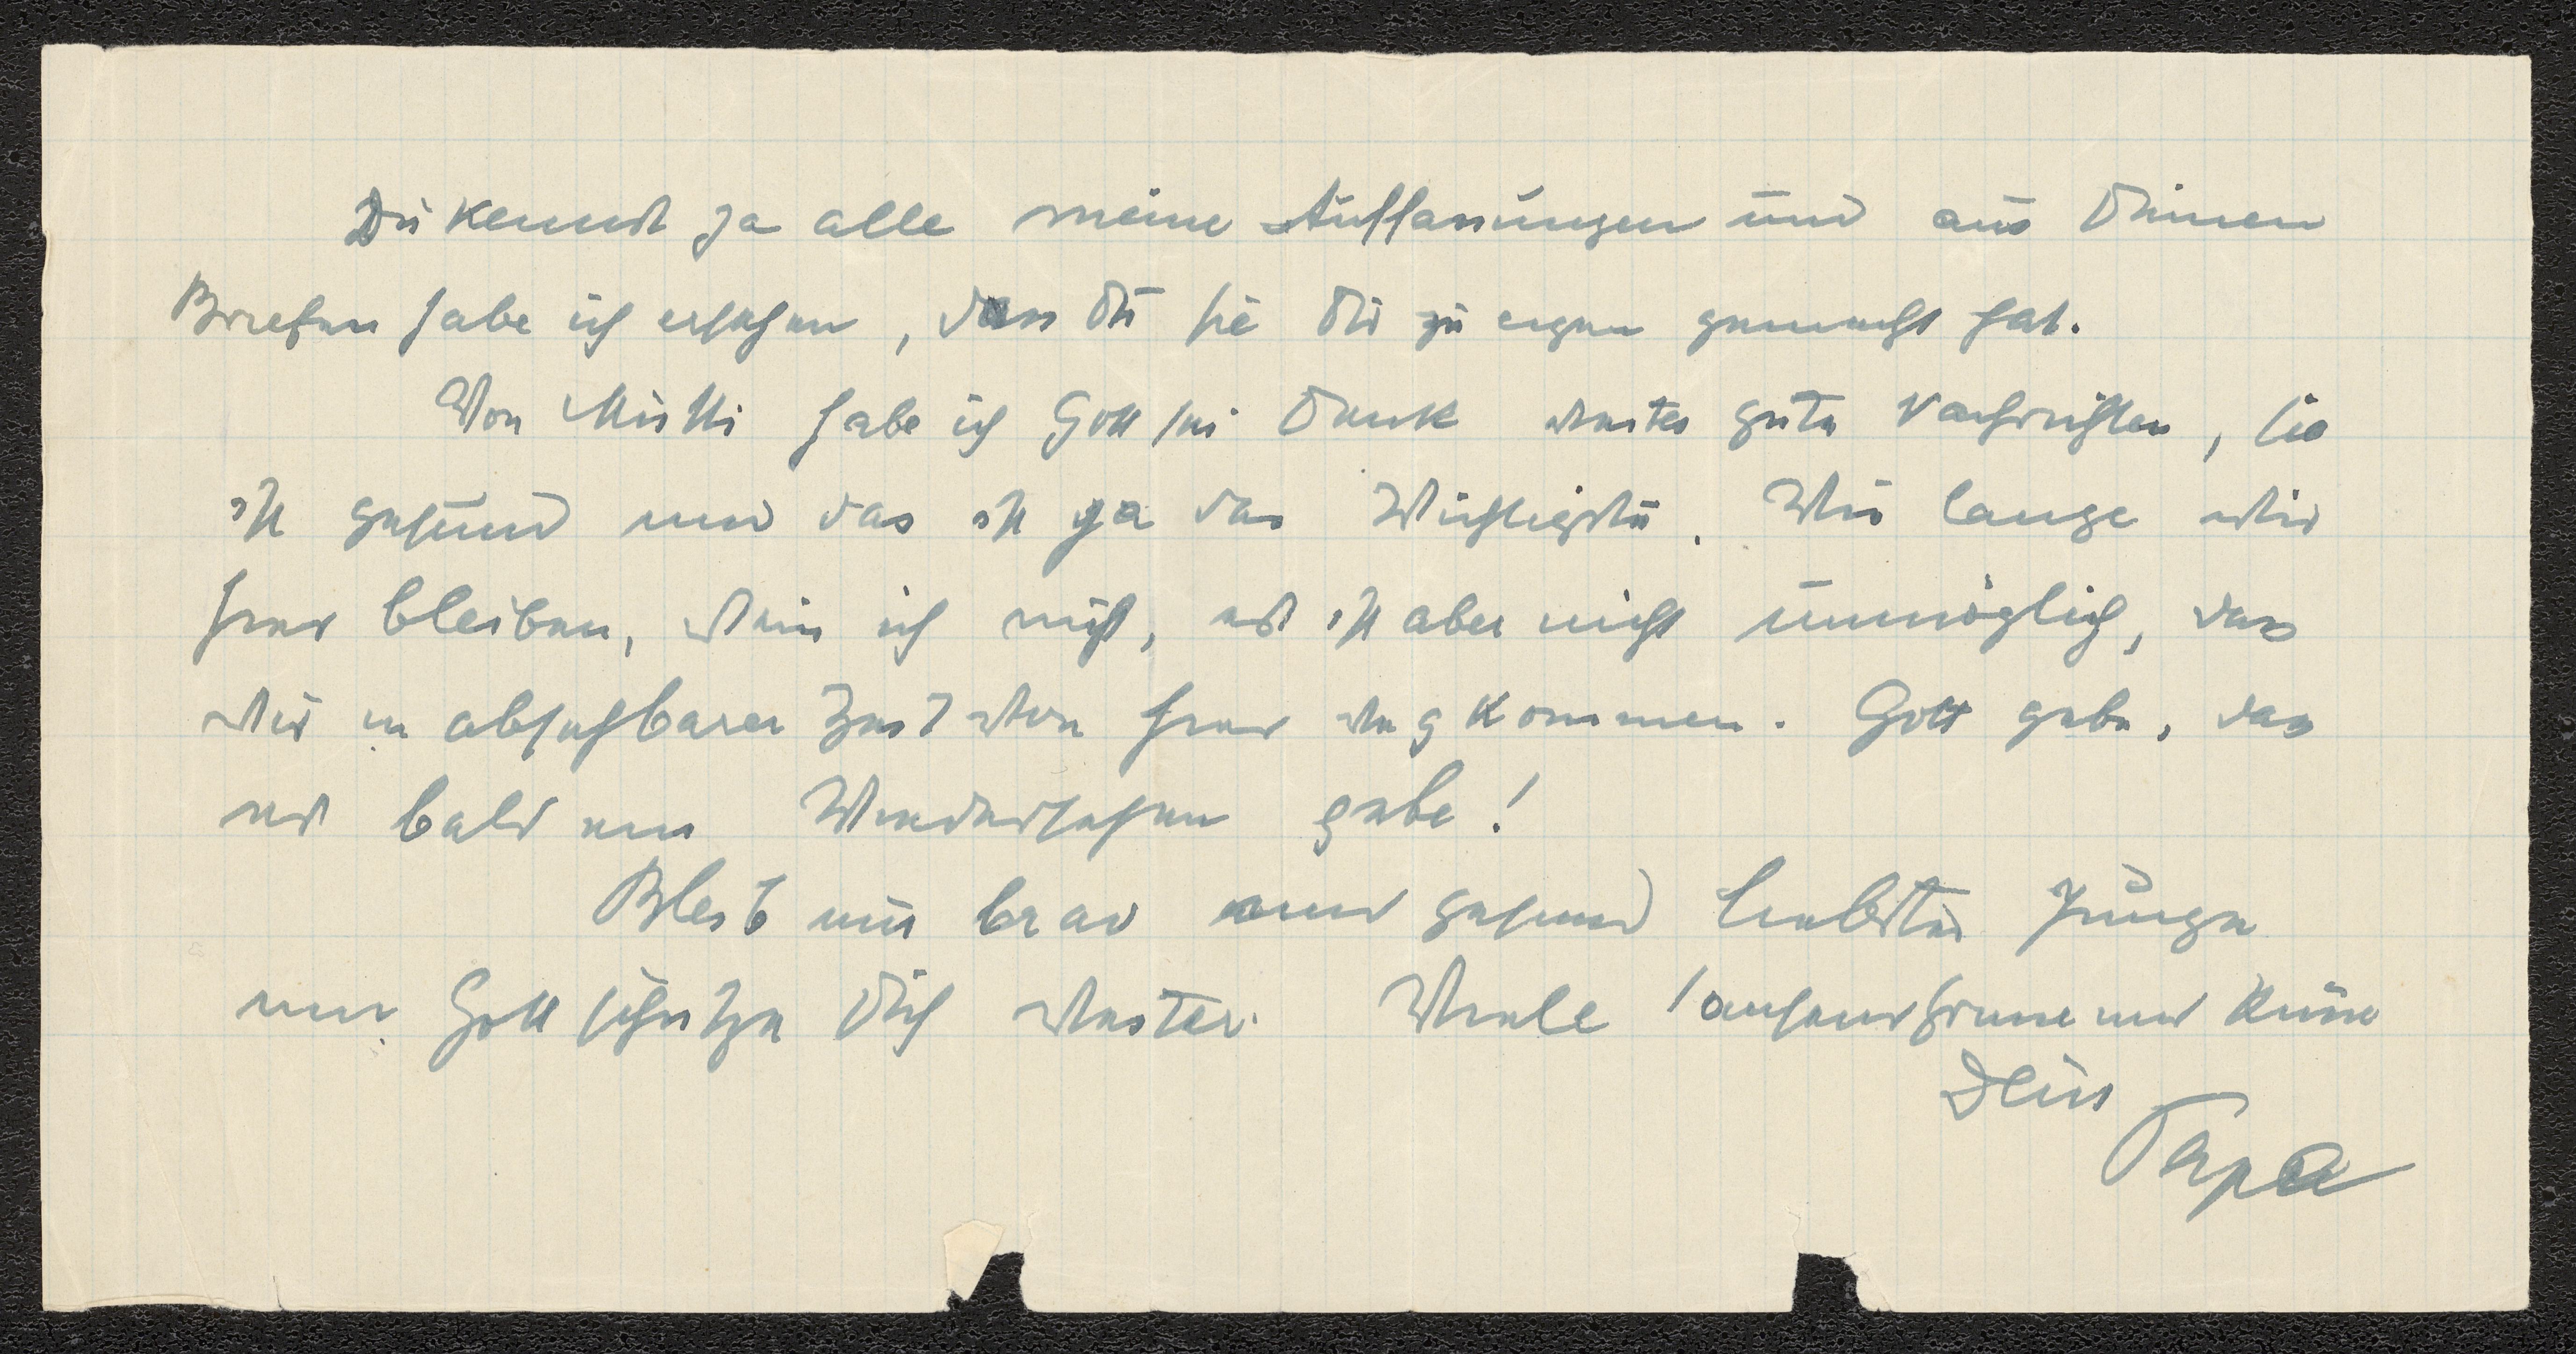 Du kennst ja alle meine Auffassungen und aus Deinen
Briefen habe ich ersehen, dass Du sie Dir zu eigen gemacht hat.
Von Mutti habe ich Gott sei Dank weiter gute Nachrichten, sie
ist gesund und das ist ja das Wichtigste. Wie lange wir
hier bleiben, weis ich nicht, es ist aber nicht unmöglich, das
wir in absehbarer Zeit von hier weg kommen. Gott gebe, das
es bald ein Wiedersehen gebe!
Bleib mir brav und gesund liebster Junge
und Gott schütze Dich weiter. Viele tausend Grüsse und Küsse
Dein
Papa